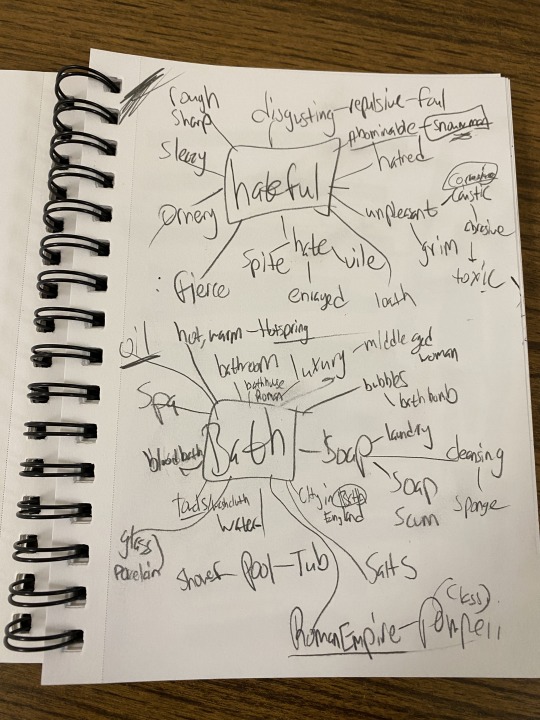 rough
sharp
disgusting - repulsive - foul
Abominable - snowman
Sleazy
hatred
hateful
corrosive
caustic
ornery
unpleasant
abrasive
hate
grim
Spite
vile
toxic
fierce
enraged
loath
hot, warm - Hotspring
oil
bathroom
luxury
middle aged
woman
bathhouse
Roman
bubbles
Spa
bath bomb
Bath
landry
Soap
cleansing
bloodbath
Soap
Scum
Sponge
City in Bath
England
washcloth
water
glass
Porcelain
shower
Pool - Tub
Salts
(class)
Roman Empire - Pompeii